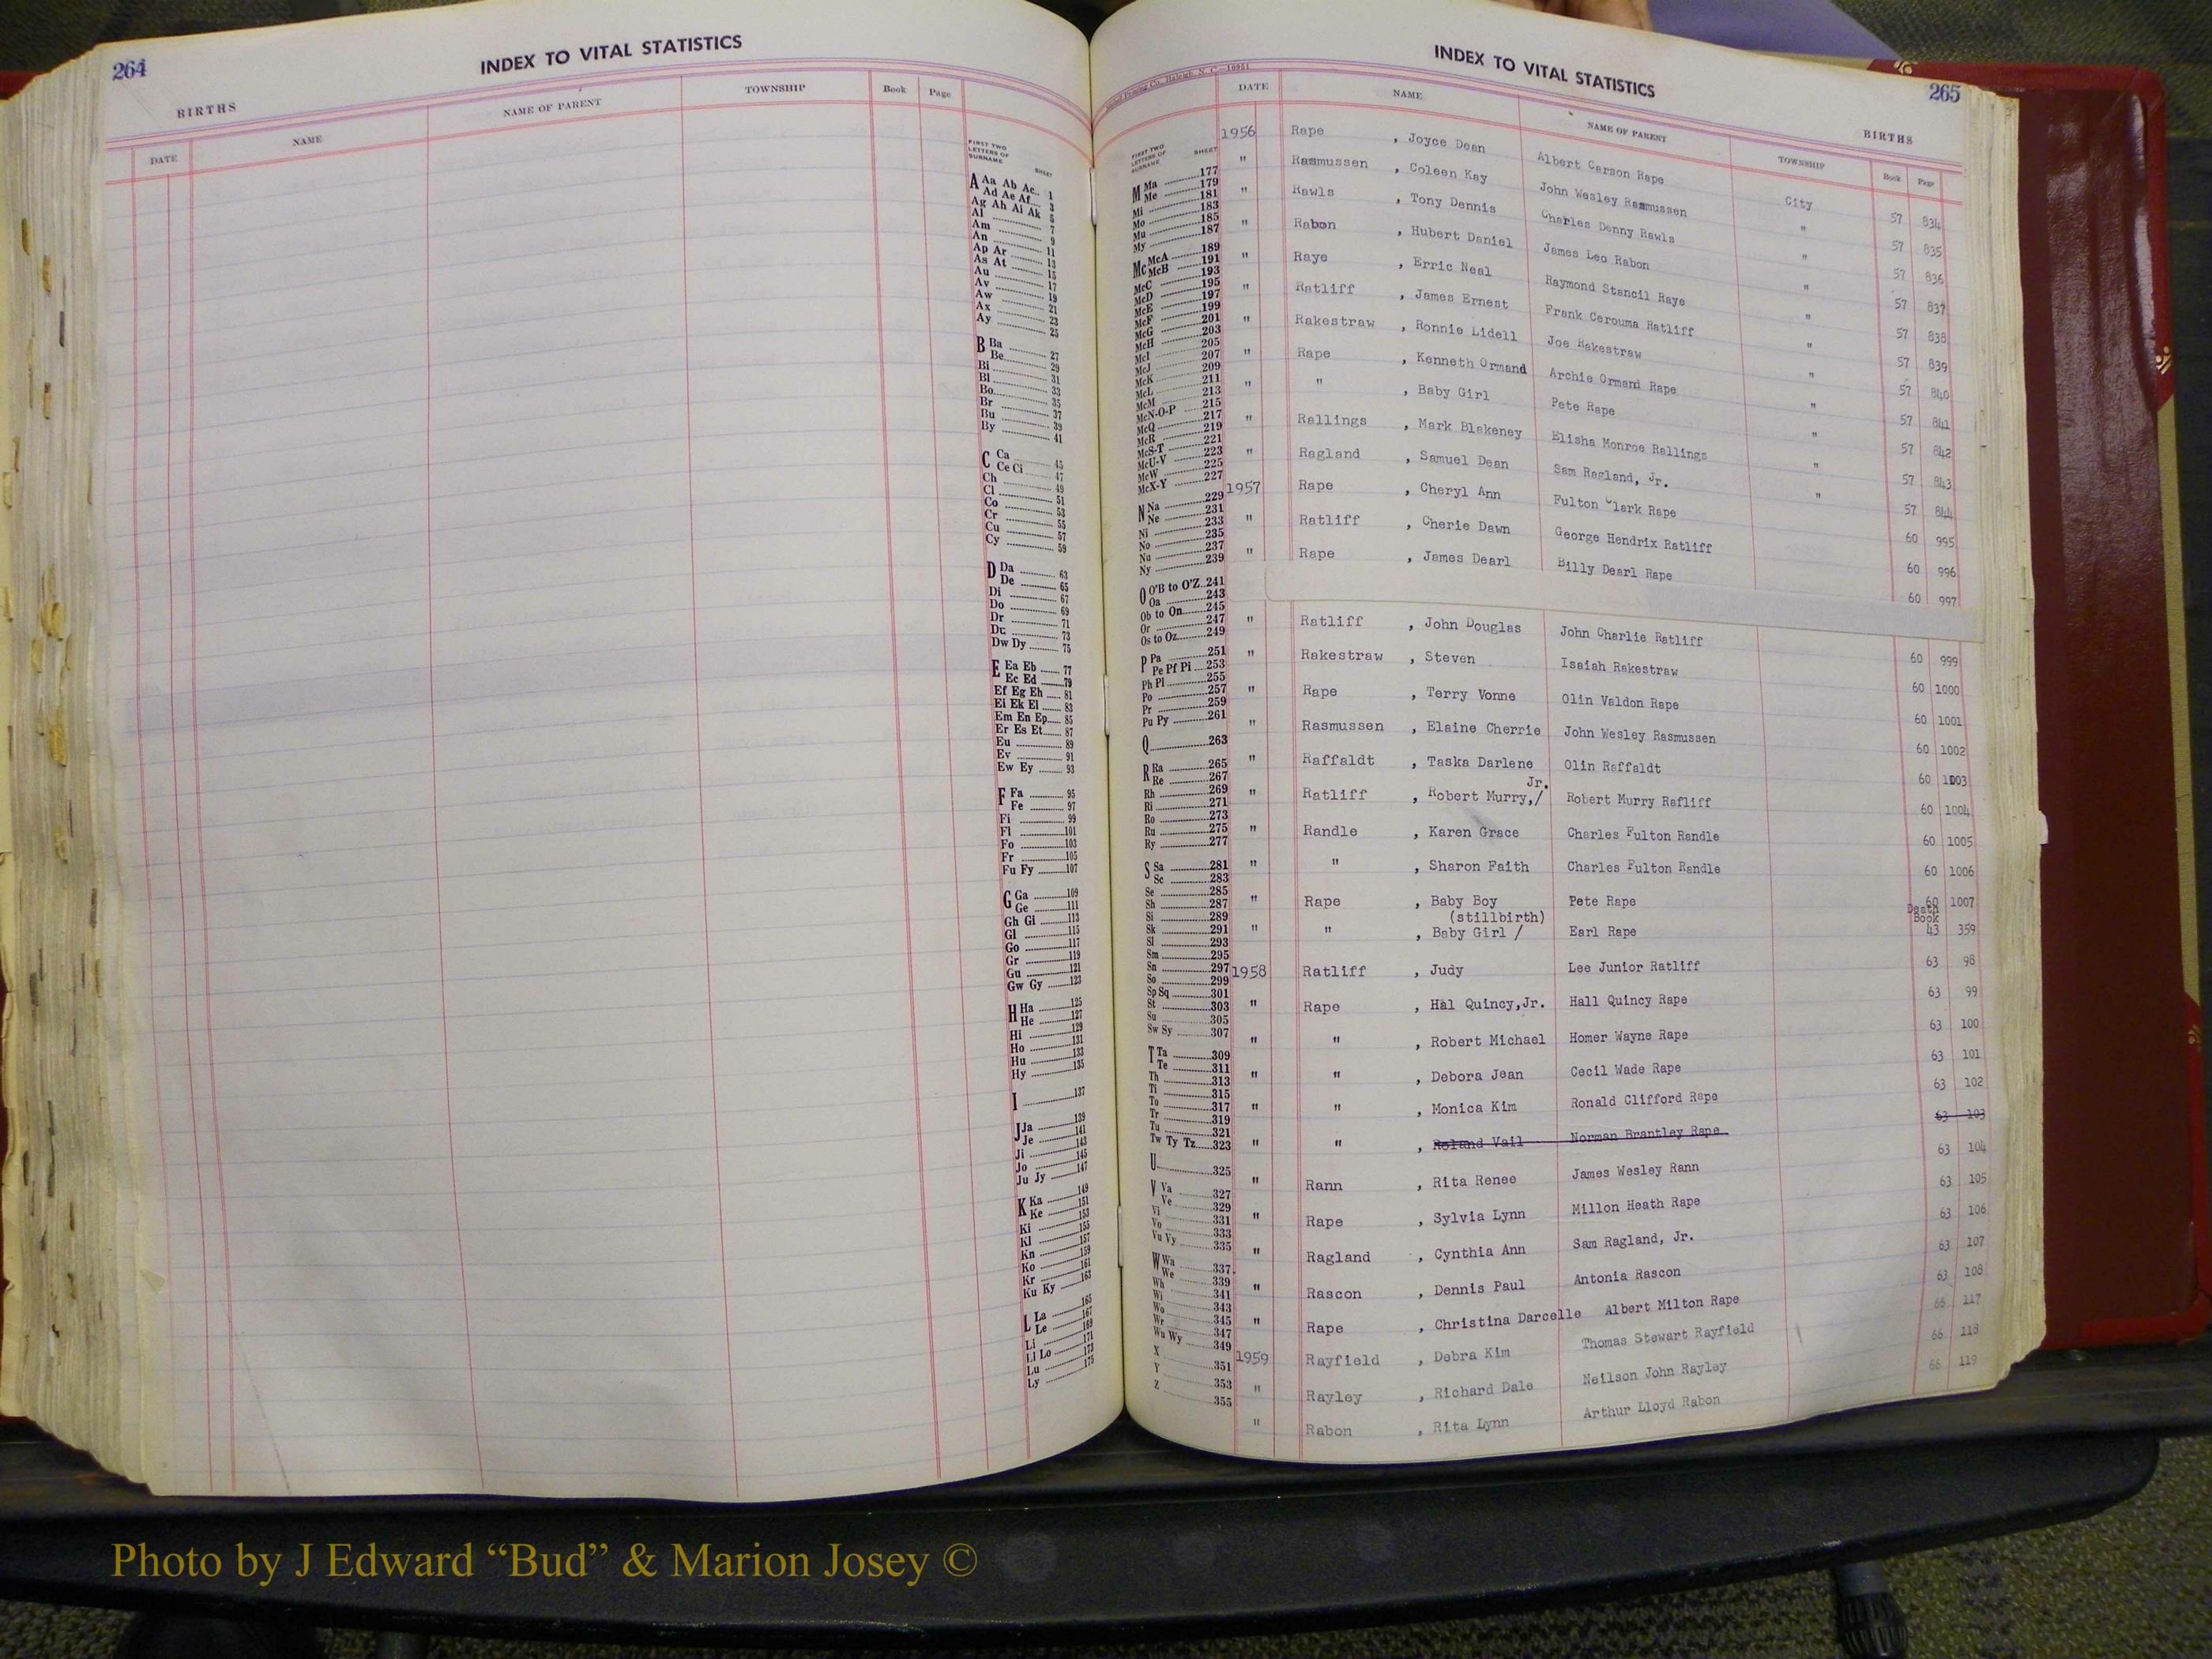 264
INDEX TO VITAL STATISTICS
BIRTHS
DATE NAME NAME OF PARENT TOWNSHIP Book Page
FIRST TWO LETTERS OF SURNAME SHEET
A Aa Ab Ac 1
Ad Ae Af 3
Ag Ah Ai Ak 5
Al 7
Am 9
An 11
Ap Ar 13
As At 15
Au 17
Av 19
Aw 21
Ax 23
Ay 25
B Ba 27
Be 29
Bi 31
Bl 33
Bo 35
Br 37
Bu 39
By 41
C Ca 45
Ce Ci 47
Ch 49
Cl 51
Co 53
Cr 55
Cu 57
Cy 59
D Da 63
De 65
Di 67
Do 69
Dr 71
Du 73
Dw Dy 75
E Ea Eb 77
Ec Ed 79
Ef Eg Eh 81
Ei Ek El 83
Em En Ep 85
Er Es Et 87
Eu 89
Ev 91
Ew Ey 93
F Fa 95
Fe 97
Fi 99
Fl 101
Fo 103
Fr 105
Fu Fy 107
G Ga 109
Ge 111
Gh Gi 113
Gl 115
Go 117
Gr 119
Gu 121
Gw Gy 123
H Ha 125
He 127
Hi 129
Ho 131
Hu 133
Hy 135
I 137
J Ja 139
Je 141
Ji 143
Jo 145
Ju Jy 147
K Ka 149
Ke 151
Ki 153
Kl 155
Kn 157
Ko 159
Kr 161
Ku Ky 163
L La 165
Le 167
Li 169
Ll Lo 171
Lu 173
Ly 175
265
INDEX TO VITAL STATISTICS
BIRTHS
DATE NAME NAME OF PARENT TOWNSHIP Book Page
FIRST TWO LETTERS OF SURNAME SHEET
M Ma 177
Me 179
Mi 181
Mo 183
Mu 185
My 187
Mc McA 189
McB 191
McC 193
McD 195
McE 197
McF 199
McG 201
McH 203
McI 205
McJ 207
McK 209
McL 211
McM 213
McN-O-P 215
McQ 217
McR 219
McS-T 221
McU-V 223
McW 225
McX-Y 227
N Na 229
Ne 231
Ni 233
No 235
Nu 237
Ny 239
O O'B to O'Z 241
Oa 243
Ob to On 245
Or 247
Os to Oz 249
P Pa 251
Pe Pf Pi 253
Ph Pl 255
Po 257
Pr 259
Pu Py 261
Q 263
R Ra 265
Re 267
Rh 269
Ri 271
Ro 273
Ru 275
Ry 277
S Sa 281
Sc 283
Se 285
Sh 287
Si 289
Sk 291
Sl 293
Sm 295
Sn 297
So 299
Sp Sq 301
St 303
Su 305
Sw Sy 307
T Ta 309
Te 311
Th 313
Ti 315
To 317
Tr 319
Tu 321
Tw Ty Tz 323
U 325
V Va 327
Ve 329
Vi 331
Vo 333
Vu Vy 335
W Wa 337
We 339
Wh 341
Wi 343
Wo 345
Wr 347
Wu Wy 349
X 351
Y 353
Z 355
1956 Rape , Joyce Dean Albert Carson Rape City 57 834
" Rasmussen , Coleen Kay John Wesley Rasmussen " 57 835
" Rawls , Tony Dennis Charles Denny Rawls " 57 836
" Rabon , Hubert Daniel James Leo Rabon " 57 837
" Raye , Erric Neal Raymond Stancil Raye " 57 838
" Ratliff , James Ernest Frank Cerouma Ratliff " 57 839
" Rakestraw , Ronnie Lidell Joe Rakestraw " 57 840
" Rape , Kenneth Ormand Archie Ormand Rape " 57 841
" " , Baby Girl Pete Rape " 57 842
" Rallings , Mark Blakeney Elisha Monroe Rallings " 57 843
" Ragland , Samuel Dean Sam Ragland, Jr. " 57 844
1957 Rape , Cheryl Ann Fulton Clark Rape 60 995
" Ratliff , Cherie Dawn George Hendrix Ratliff 60 996
" Rape , James Dearl Billy Dearl Rape 60 997
" Ratliff , John Douglas John Charlie Ratliff 60 999
" Rakestraw , Steven Isaiah Rakestraw 60 1000
" Rape , Terry Vonne Olin Valdon Rape 60 1001
" Rasmussen , Elaine Cherrie John Wesley Rasmussen 60 1002
" Raffaldt , Taska Darlene Olin Raffaldt 60 1003
" Ratliff , Robert Murry,/ Jr. Robert Murry Rafliff 60 1004
" Randle , Karen Grace Charles Fulton Randle 60 1005
" " , Sharon Faith Charles Fulton Randle 60 1006
" Rape , Baby Boy Pete Rape 60 1007
" " , Baby Girl / (stillbirth) Earl Rape Death Book 43 359
1958 Ratliff , Judy Lee Junior Ratliff 63 98
" Rape , Hal Quincy,Jr. Hall Quincy Rape 63 99
" " , Robert Michael Homer Wayne Rape 63 100
" " , Debora Jean Cecil Wade Rape 63 101
" " , Monica Kim Ronald Clifford Rape 63 102
" " , Roland Vail Norman Brantley Rape 63 103
" Rann , Rita Renee James Wesley Rann 63 104
" Rape , Sylvia Lynn Millon Heath Rape 63 105
" Ragland , Cynthia Ann Sam Ragland, Jr. 63 106
" Rascon , Dennis Paul Antonia Rascon 63 107
" Rape , Christina Darcelle Albert Milton Rape 63 108
1959 Rayfield , Debra Kim Thomas Stewart Rayfield 66 117
" Rayley , Richard Dale Neilson John Rayley 66 118
" Rabon , Rita Lynn Arthur Lloyd Rabon 66 119
Photo by J Edward “Bud” & Marion Josey ©